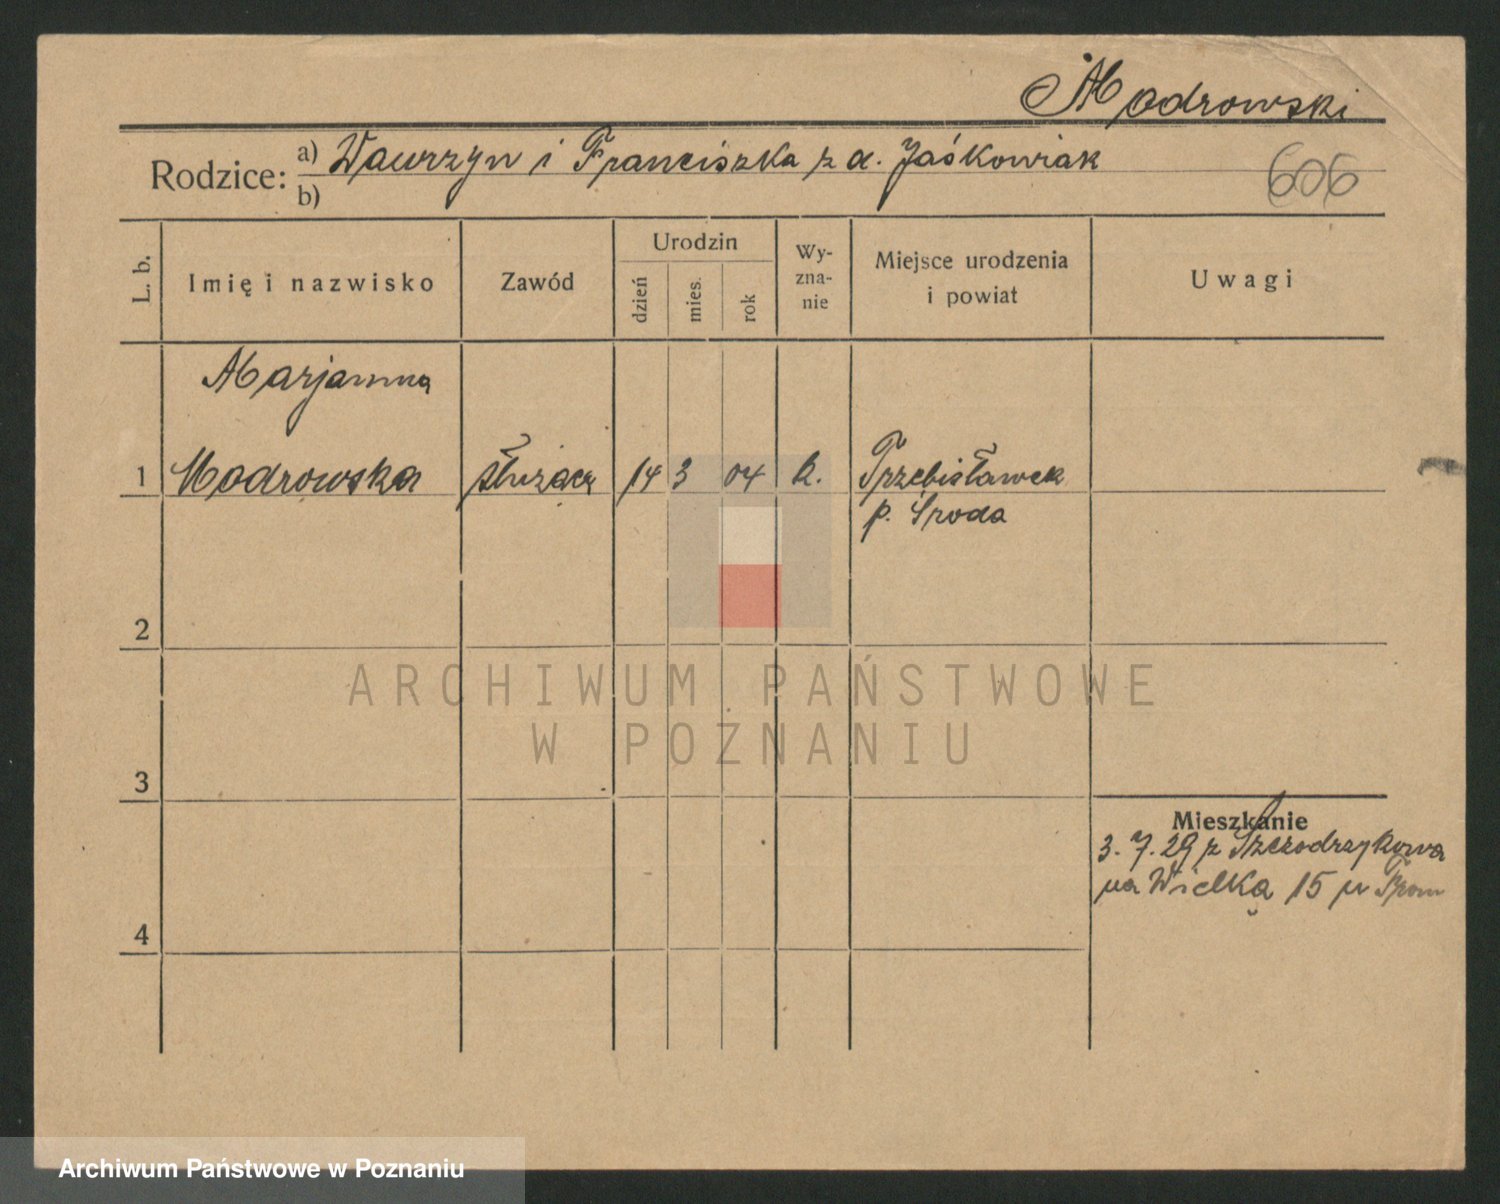 Modrowski
Rodzice: a) Wawrzyn i Franciszka z d. Jaśkowiak
b)
606
L. b.
Imię i nazwisko
Zawód
Urodzin
dzień
mies.
rok
Wy-
zna-
nie
Miejsce urodzenia
i powiat
Uwagi
Marjanna
1 Modrowska służąca 14 3 04 k. Przebisławek
p. Środa
2
ARCHIWUM PAŃSTWOWE
W POZNANIU
3
Mieszkanie
3.7.29 z Szczodrzykowa
na Wielką 15 u
4
Archiwum Państwowe w Poznaniu